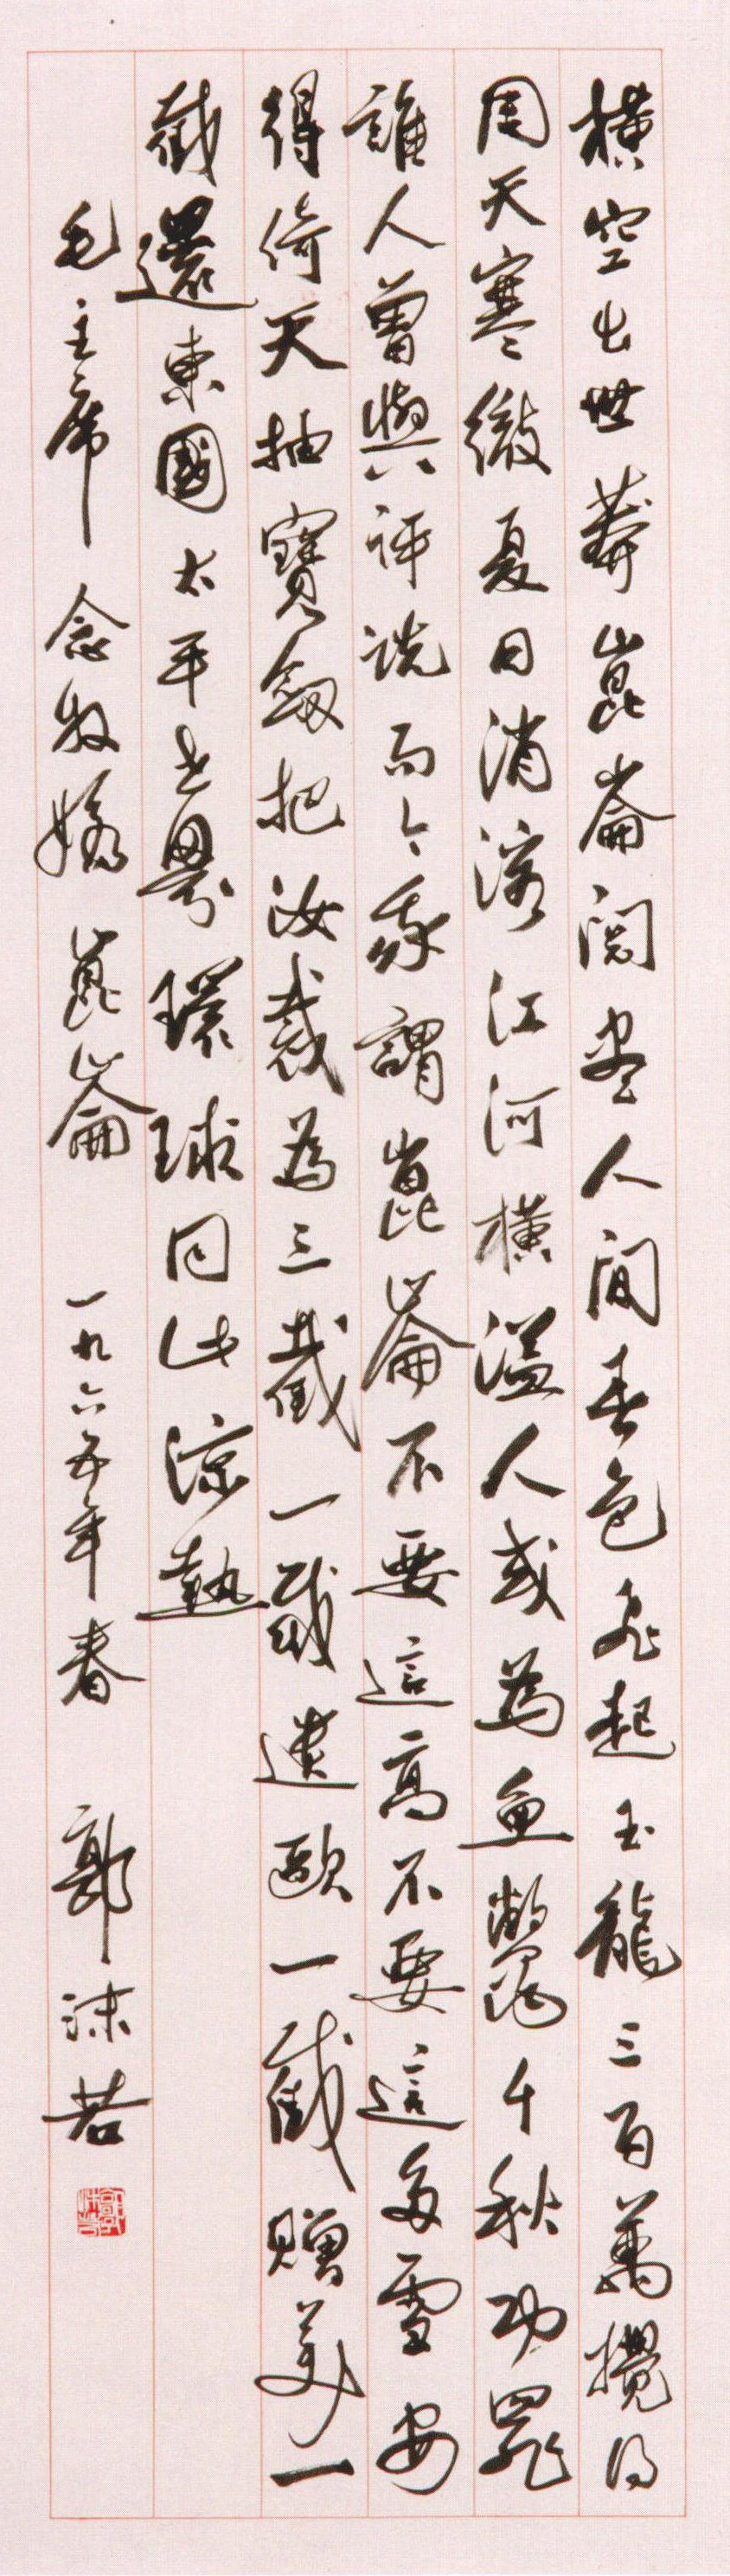 橫空出世莽崑崙閱盡人間春色飛起玉龍三百萬攪得
周天寒徹夏日消溶江河橫溢人或為魚鱉千秋功罪
誰人曾與評說而今我謂崑崙不要這高不要這多雪安
得倚天抽寶劍把汝裁為三截一截遺歐一截贈美一
截還東國太平世界環球同此涼熱
毛主席 念奴嬌 崑崙 一九六五年春 郭沫若
郭沫若